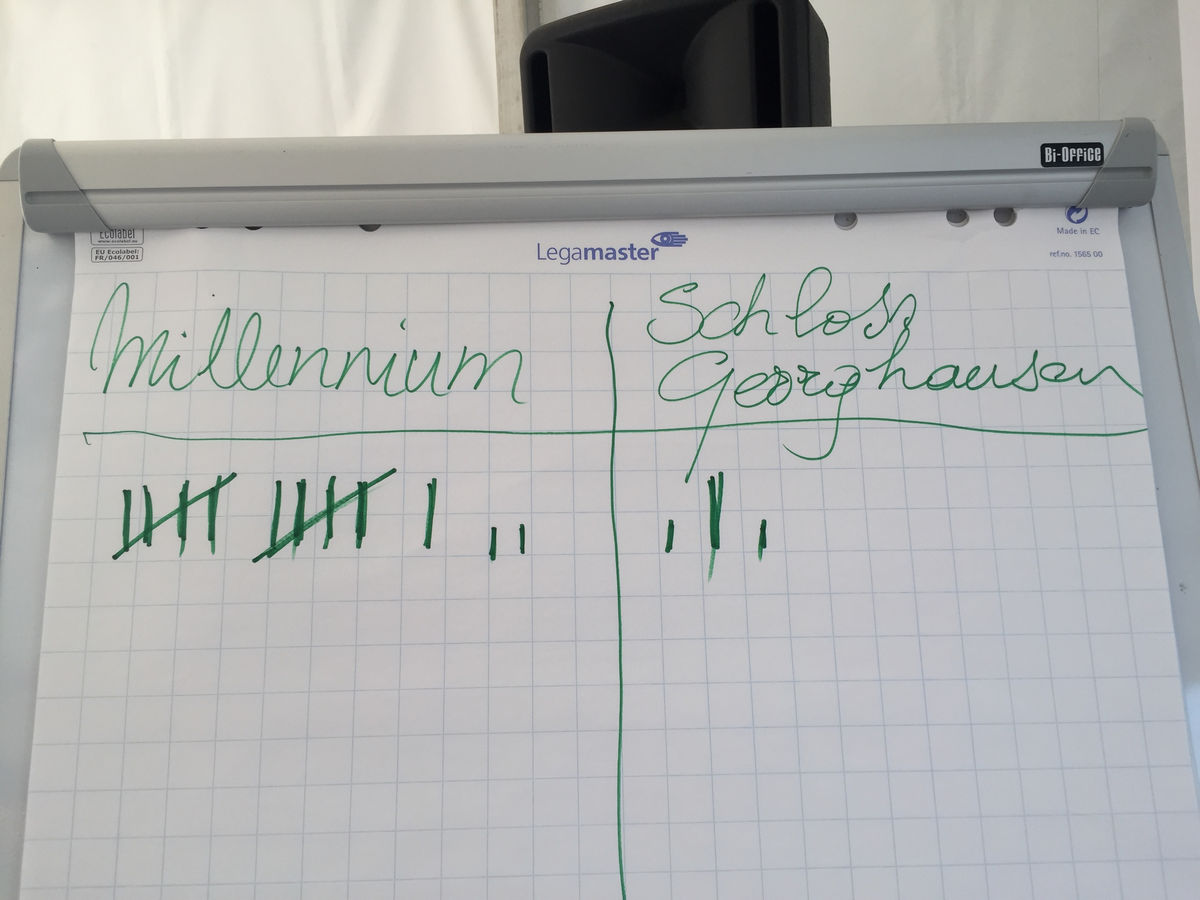 Bi-Office
Ecolabel
www.ecolabel.eu
EU Ecolabel:
FR/046/001
Legamaster
Made in EC
ref.no. 1565 00
Millennium
Schloss
Georghausen